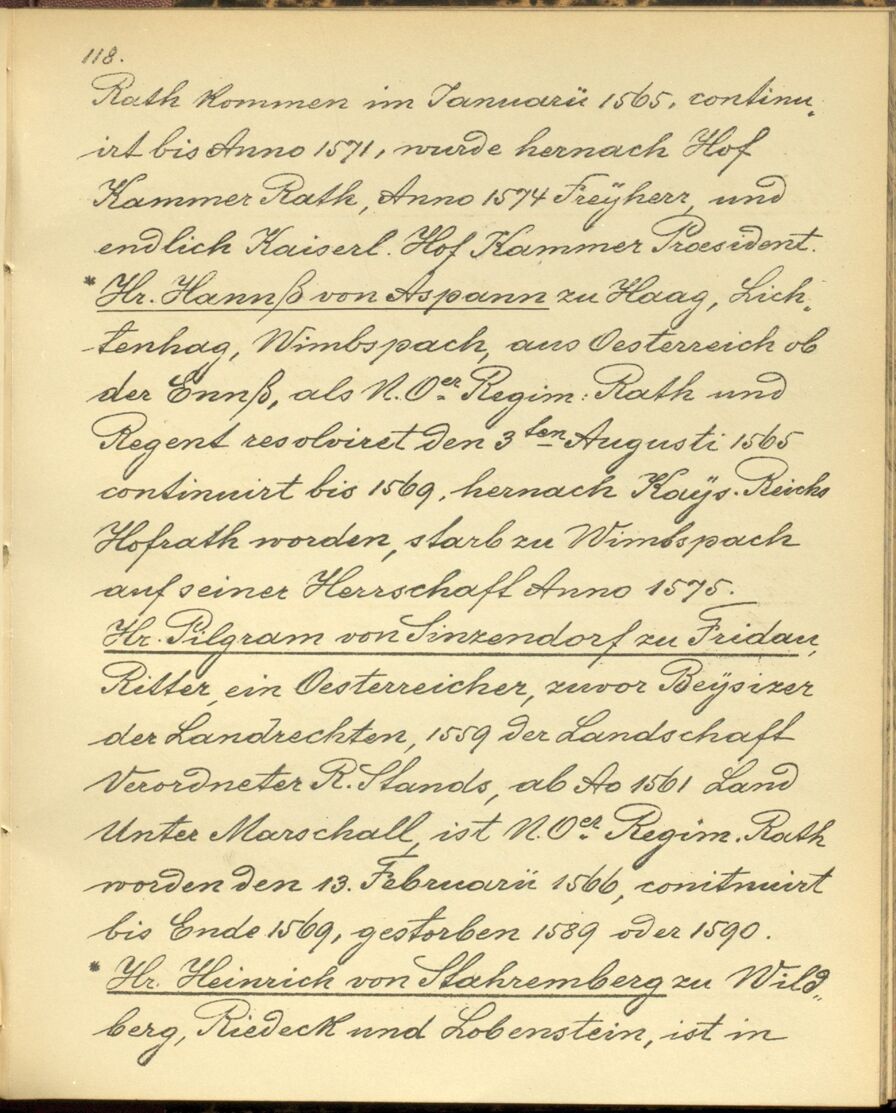 118.
Rath kommen im Januarii 1565, continu„
irt bis Anno 1571, wurde hernach Hof
Kammer Rath, Anno 1574 Freÿherr, und
endlich Kaiserl. Hof Kammer Præsident.
* Hr. Hannß von Aspann zu Haag, Lich„
tenhag, Wimbspach, aus Oesterreich ob
der Ennß, als N. Oer Regim: Rath und
Regent resolviret den 3ten Augusti 1565
continuirt bis 1569, hernach Kaÿs. Reichs
Hofrath worden, starb zu Wimbspach
auf seiner Herrschaft Anno 1575.
Hr. Pilgram von Sinzendorf zu Fridau,
Ritter, ein Oesterreicher, zuvor Beÿsizer
der Landrechten, 1559 der Landschaft
Verordneter R. Stands, ab Ao 1561 Land
Unter Marschall, ist N. Oer Regim. Rath
worden den 13. Februarii 1566, conitnuirt
bis Ende 1569, gestorben 1589 oder 1590.
* Hr. Heinrich von Stahremberg zu Wild„
berg, Riedeck und Lobenstein, ist in